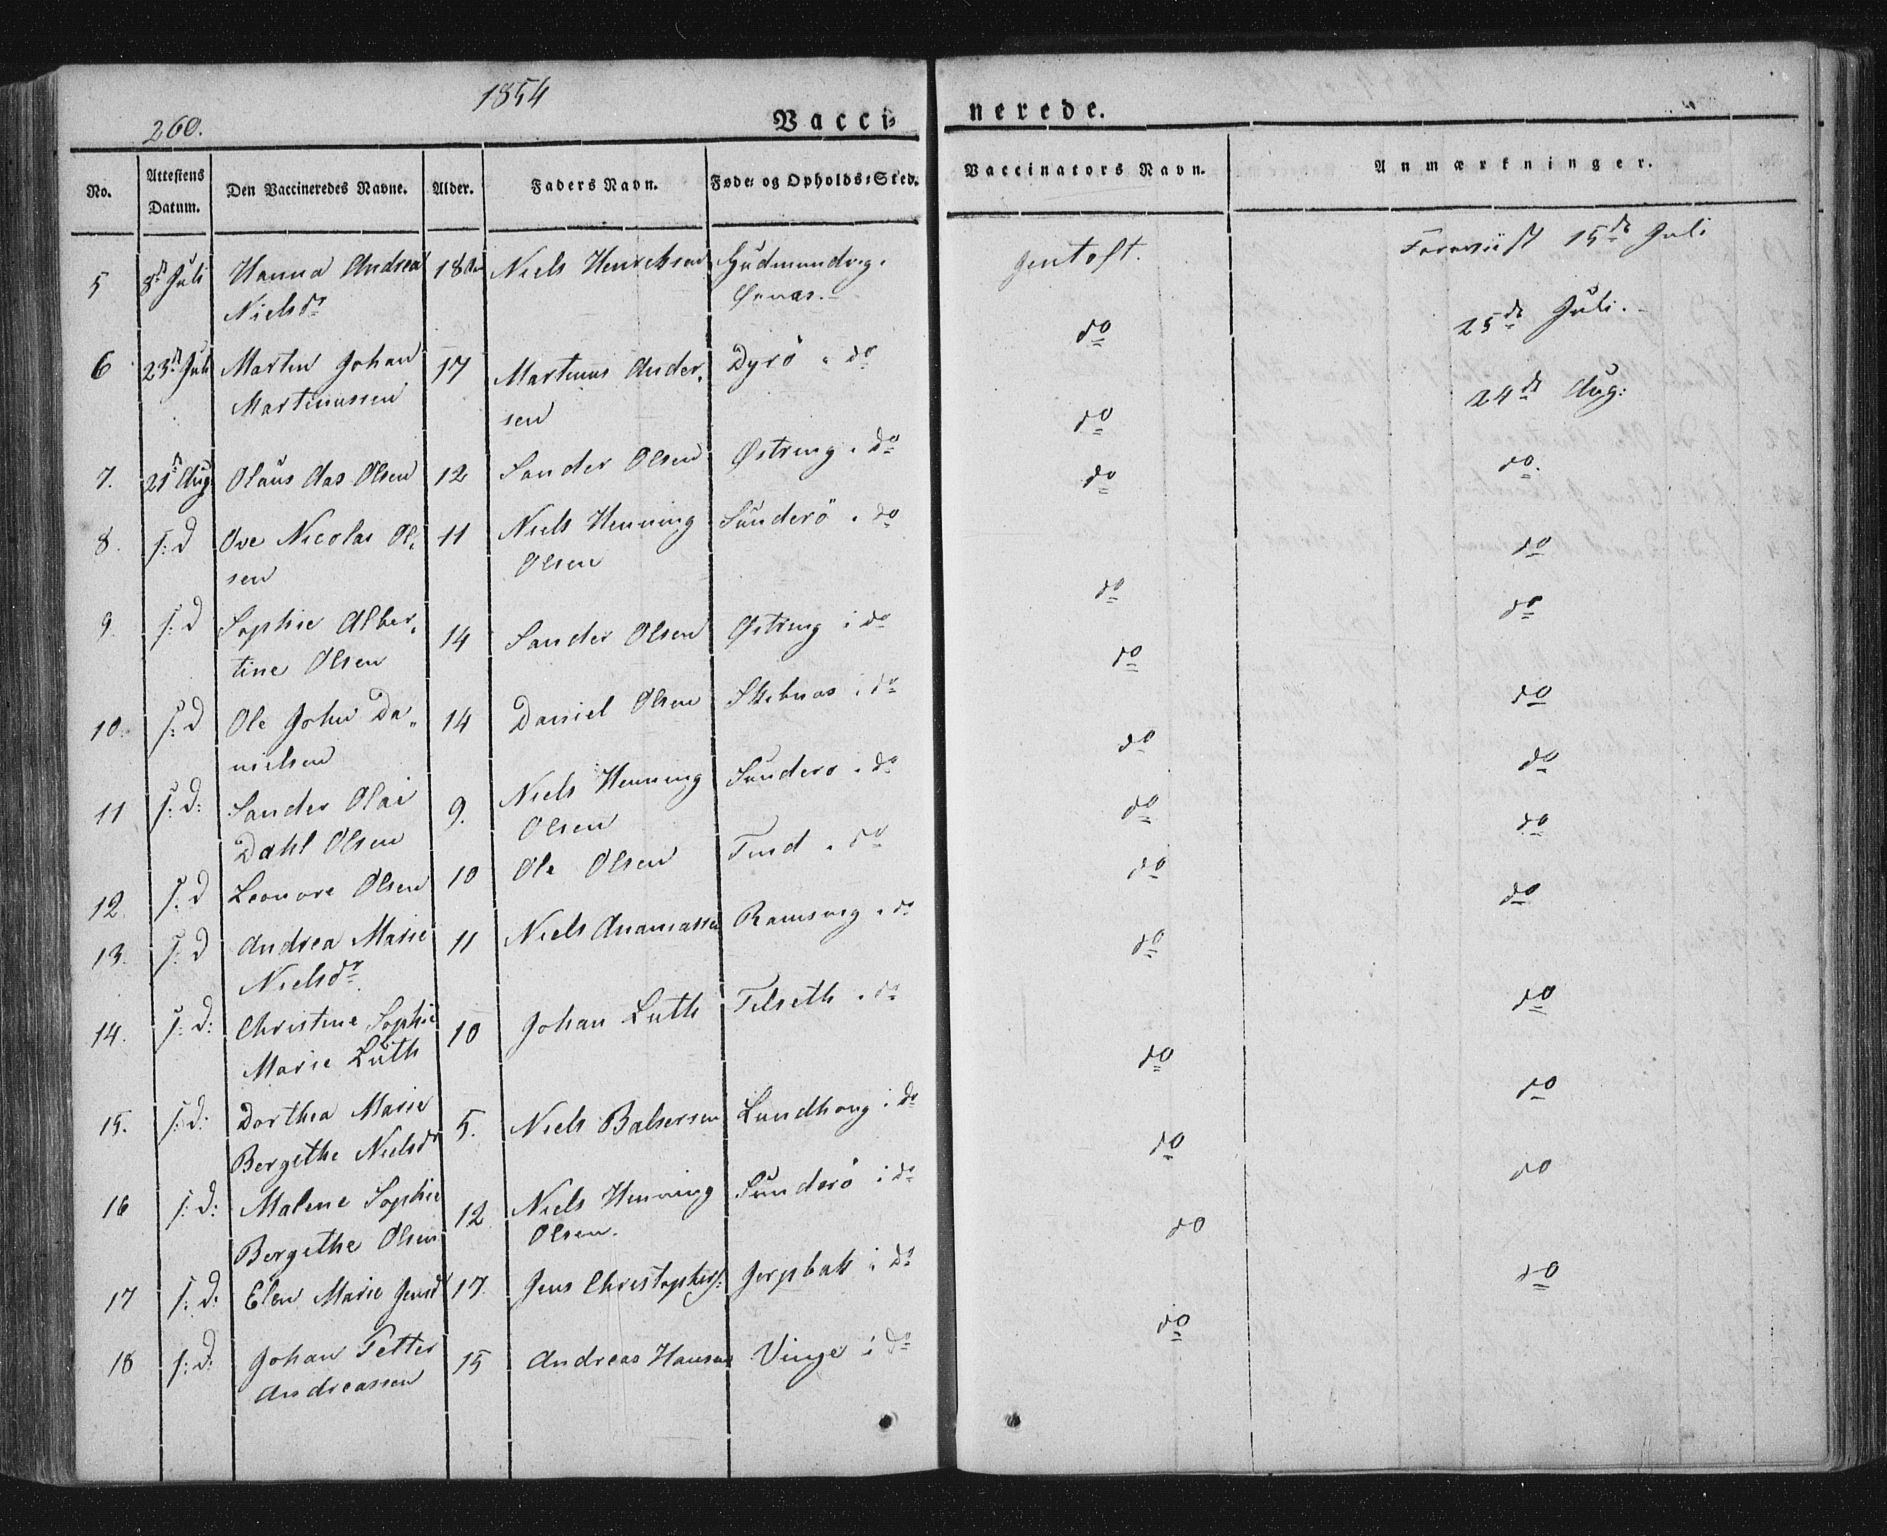 1854
260.
Vaccinerede.
No. Attestens Datum. Den Vaccineredes Navne. Alder. Faders Navn. Føde- og Opholds-Sted. Vaccinators Navn. Anmærkninger.
5 8de Juli Hanna Andrea 18 Niels Henriksen Gudmundvig. Gentoft. Foreviist 15de Juli
Nielsdr
6 23de Juli Martin Johan 17 Martinus Ander- Dyrö i do do 25de Juli.
Martinussen sen
7. 21de Aug Olaus Aas Olsen 12 Sander Olsen Østreng i do do 24de Aug:
8. s: d Ove Nicolai Ol- 11 Niels Henning Sunderö i do do do.
sen Olsen
9. s: d Sophie Alber- 14 Sander Olsen Østreng i do do do
tine Olsen
10. s: d Ole John Da- 14 Daniel Olsen i do do do
nielsen
11 s: d: Sander Olai 9. Niels Henning Sunderö i do do do
Dahl Olsen Olsen
12. s: d Leonore Olsen 10 Ole Olsen Tind i do do do
13. s: d Andrea Marie 11 Niels Ananiassen Ramsvig i do do do
Nielsdr
14. s: d: Christine Sophie 10 Johan Lüth Tilseth i do do do
Marie Lüth
15. s: d: Dorthea Marie 5. Niels Balsersen Lundhoug i do do do
Bergithe Nielsdr
16 s: d: Malene Sophie 12 Niels Henning Sunderö i do do do
Bergithe Olsen Olsen.
17 s: d: Elen Marie Jensd 17. Jens Christophers: Jerpbak i do do do
18 s: d: Johan Petter 15 Andreas Hansen Vinge i do do do
Andreassen